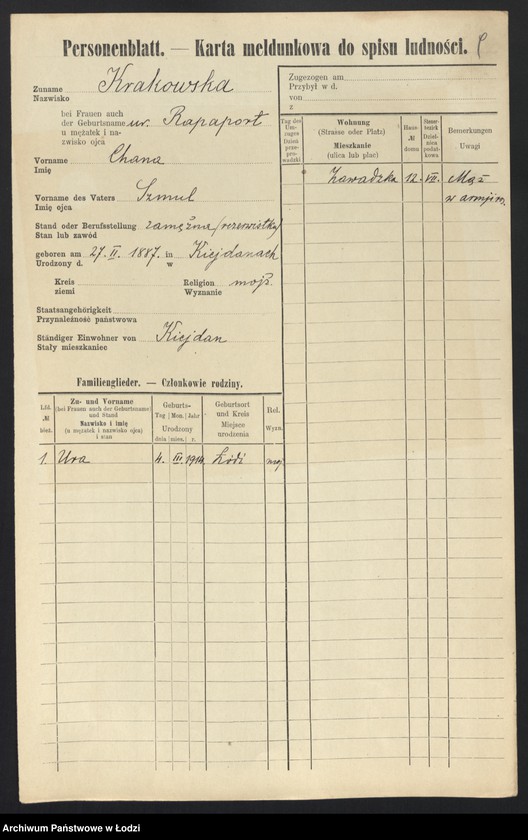 Personenblatt. — Karta meldunkowa do spisu ludności.
Zuname
Nazwisko
Krakowska
bei Frauen auch
der Geburtsname
u mężatek i na-
zwisko ojca
ur. Rapaport
Vorname
Imię
Chana
Vorname des Vaters
Imię ojca
Szmul
Stand oder Berufsstellung
Stan lub zawód
zamężna (rezerwistka)
geboren am 27. II. 1887. in Kiejdanach
Urodzony d. w
Kreis
ziemi
Religion
Wyznanie
mojż.
Staatsangehörigkeit
Przynależność państwowa
Ständiger Einwohner von
Stały mieszkaniec
Kiejdan
Familienglieder. — Członkowie rodziny.
Lfd.
№
Zu- und Vorname
(bei Frauen auch der Geburtsname
und Stand
Nazwisko i imię
(u mężatek i nazwisko ojca)
i stan
Geburts-
Tag Mon. Jahr
Urodzony
dnia mies. r.
Geburtsort
und Kreis
Miejsce
urodzenia
Rel.
Wyzn.
1. Ura 4. III. 1914. Łódź moj
Zugezogen am
Przybył w d.
von
z
Tag des
Um-
zuges
Dzień
prze-
pro-
wadzki
Wohnung
(Strasse oder Platz)
Mieszkanie
(ulica lub plac)
Haus-
№
domu
Steuer-
bezirk
Dzielni-
ca podat-
kowa
Bemerkungen
Uwagi
Zawadzka 12. VII. Mąż
w armji ros.
Archiwum Państwowe w Łodzi